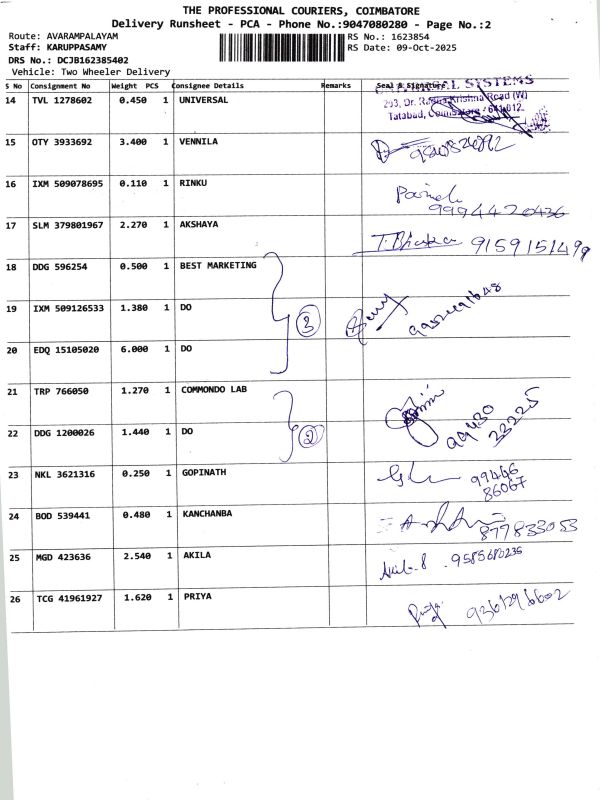 THE PROFESSIONAL COURIERS, COIMBATORE
Delivery Runsheet - PCA - Phone No.:9047080280 - Page No.:2
Route: AVARAMPALAYAM RS No.: 1623854
Staff: KARUPPASAMY RS Date: 09-Oct-2025
DRS No.: DCJB162385402
Vehicle: Two Wheeler Delivery
S No Consignment No Weight PCS Consignee Details Remarks Seal & Signature
SYSTEMS
14 TVL 1278602 0.450 1 UNIVERSAL
293, Dr. Rama Krishna Road (W)
Tatabad, Coimbatore - 641 012.
15 OTY 3933692 3.400 1 VENNILA
16 IXM 509078695 0.110 1 RINKU
9994420436
17 SLM 379801967 2.270 1 AKSHAYA
9159151499
18 DDG 596254 0.500 1 BEST MARKETING
19 IXM 509126533 1.380 1 DO 3
20 EDQ 15105020 6.000 1 DO
21 TRP 766050 1.270 1 COMMONDO LAB
22 DDG 1200026 1.440 1 DO 2 99430
33225
23 NKL 3621316 0.250 1 GOPINATH 99466
86067
24 BOD 539441 0.480 1 KANCHANBA
877833053
25 MGD 423636 2.540 1 AKILA 9585680235
26 TCG 41961927 1.620 1 PRIYA